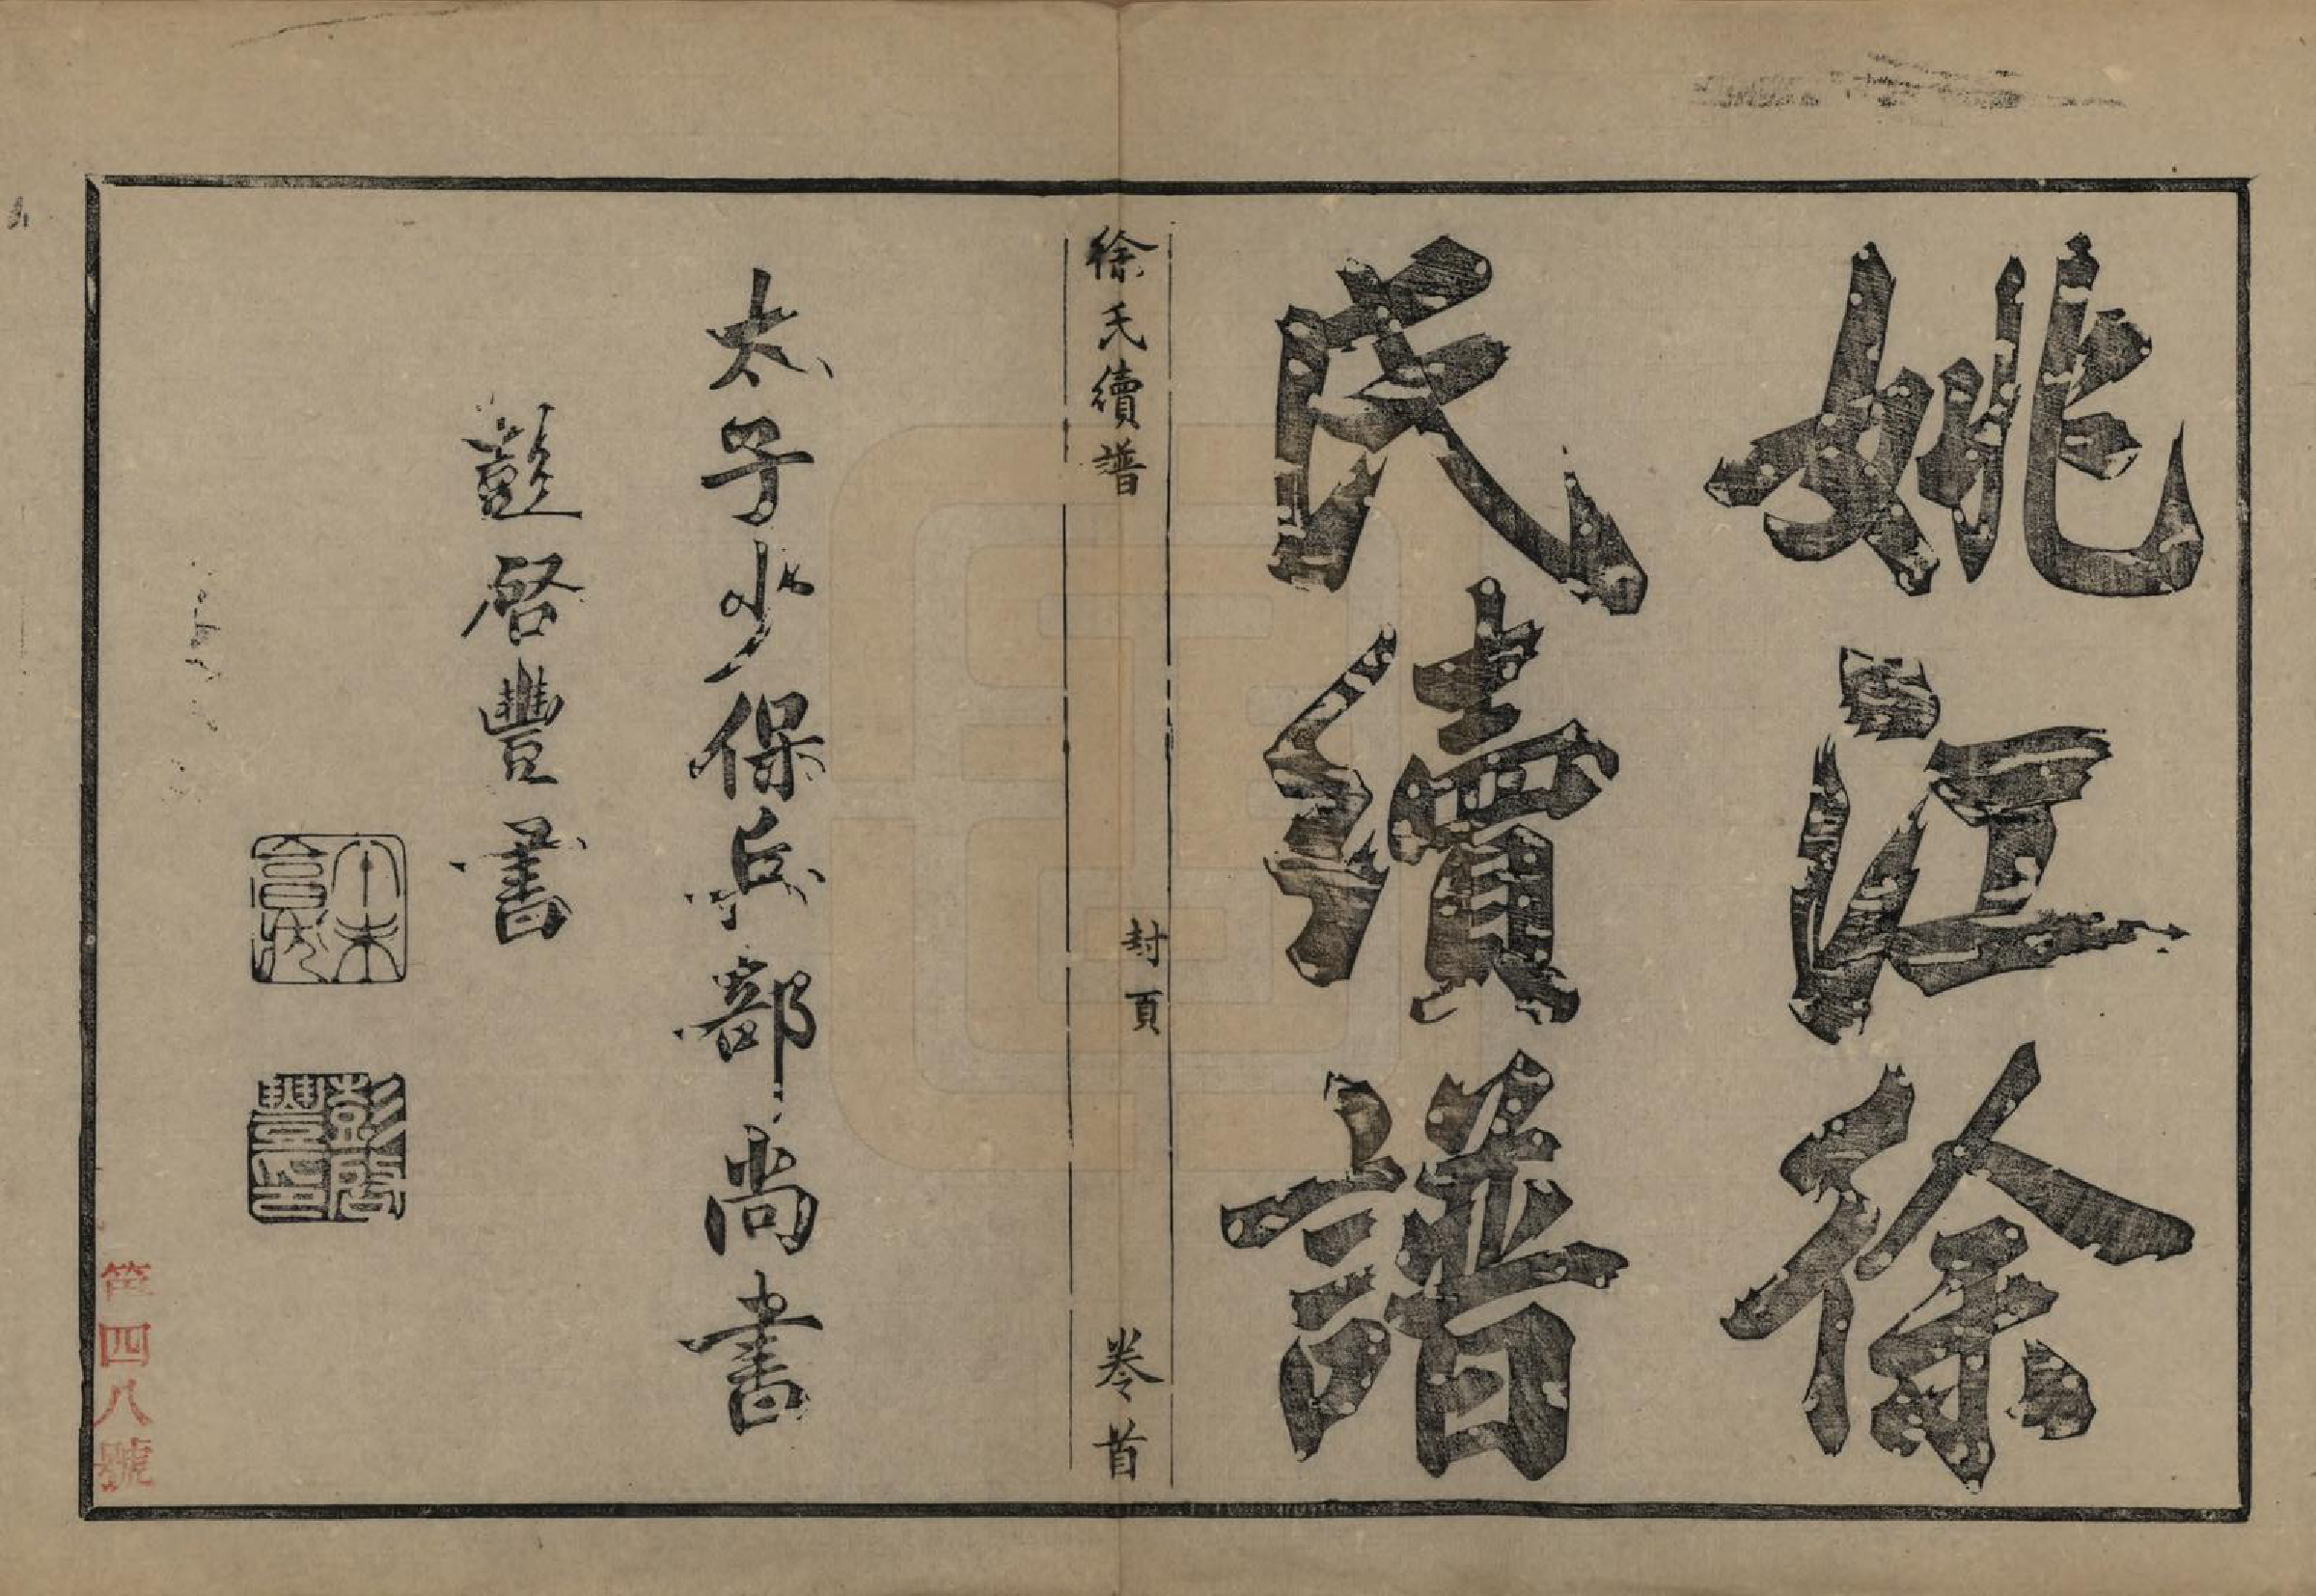 姚江徐
氏續譜
徐氏續譜
封頁
卷首
太子少保兵部尚書
彭啓豐書
彭啓豐印
四八號